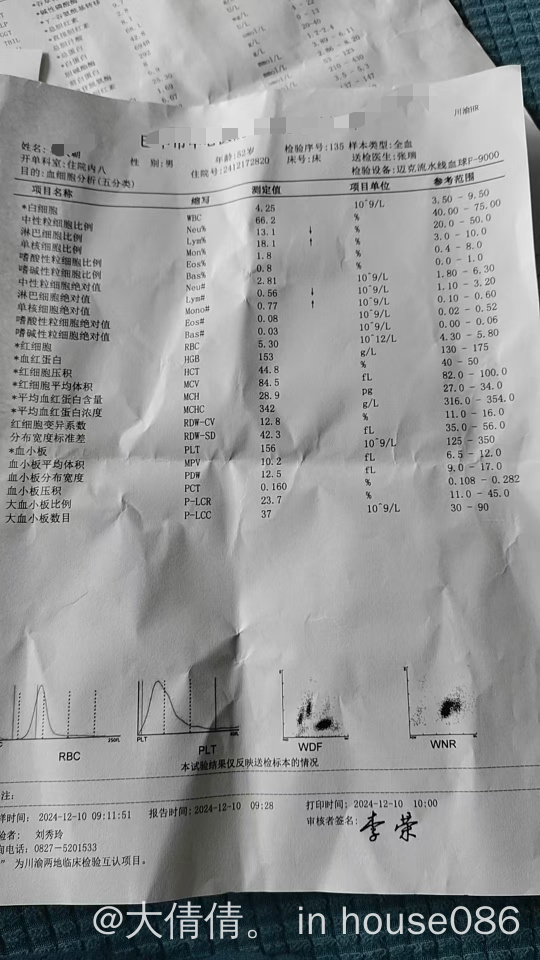 川渝HR
姓名: 性 别:男 年龄:52岁 检验序号:135 样本类型:全血
开单科室:住院内八 住院号:2412172820 床号:床 送检医生:张瑞
目的:血细胞分析(五分类) 检验设备:迈克流水线血球F-9000
项目名称 缩写 测定值 项目单位 参考范围
*白细胞 WBC 4.25 10^9/L 3.50 - 9.50
中性粒细胞比例 Neu% 66.2 % 40.00 - 75.00
淋巴细胞比例 Lym% 13.1 ↓ % 20.0 - 50.0
单核细胞比例 Mon% 18.1 ↑ % 3.0 - 10.0
嗜酸性粒细胞比例 Eos% 1.8 % 0.4 - 8.0
嗜碱性粒细胞比例 Bas% 0.8 % 0.0 - 1.0
中性粒细胞绝对值 Neu# 2.81 10^9/L 1.80 - 6.30
淋巴细胞绝对值 Lym# 0.56 ↓ 10^9/L 1.10 - 3.20
单核细胞绝对值 Mono# 0.77 ↑ 10^9/L 0.10 - 0.60
嗜酸性粒细胞绝对值 Eos# 0.08 10^9/L 0.02 - 0.52
嗜碱性粒细胞绝对值 Bas# 0.03 10^9/L 0.00 - 0.06
*红细胞 RBC 5.30 10^12/L 4.30 - 5.80
*血红蛋白 HGB 153 g/L 130 - 175
*红细胞压积 HCT 44.8 % 40 - 50
*红细胞平均体积 MCV 84.5 fL 82.0 - 100.0
*平均血红蛋白含量 MCH 28.9 pg 27.0 - 34.0
*平均血红蛋白浓度 MCHC 342 g/L 316.0 - 354.0
红细胞变异系数 RDW-CV 12.8 % 11.0 - 16.0
分布宽度标准差 RDW-SD 42.3 fL 35.0 - 56.0
*血小板 PLT 156 10^9/L 125 - 350
血小板平均体积 MPV 10.2 fL 6.5 - 12.0
血小板分布宽度 PDW 12.5 fL 9.0 - 17.0
血小板压积 PCT 0.160 % 0.108 - 0.282
大血小板比例 P-LCR 23.7 % 11.0 - 45.0
大血小板数目 P-LCC 37 10^9/L 30 - 90
RBC PLT PLT WDF WNR
本试验结果仅反映送检标本的情况
注:
样时间: 2024-12-10 09:11:51 报告时间:2024-12-10 09:28 打印时间:2024-12-10 10:00
验者: 刘秀玲 审核者签名: 李荣
询电话: 0827-5201533
" 为川渝两地临床检验互认项目。
@大倩倩。 in house086